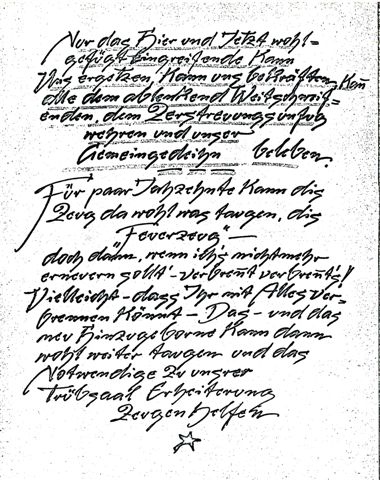 Nur das Hier und Jetzt wohl=
gefügt eingreifende Kann
Uns ergötzen, Kann uns bekräften, Kañ
alle dem ablenkend Weitschweif-
enden, dem Zerstreuungsunfug
wehren und unser
Gemeingedeihn beleben.
Für paar Jahzehnte Kann dis
Zeug da wohl was taugen, dis
"Feuerzeug", —
doch dann, wenn ihr's nicht mehr
erneuern sollt' - verbrent verbrent's!
Vielleicht - dass Ihr mit Alles ver=
brennen Könnt - Das - und das
neu Hinzugeborne Kann dann
wohl weiter taugen und das
Notwendige zu unsrer
Trübsaal Erheiterung
Zeugen helfen